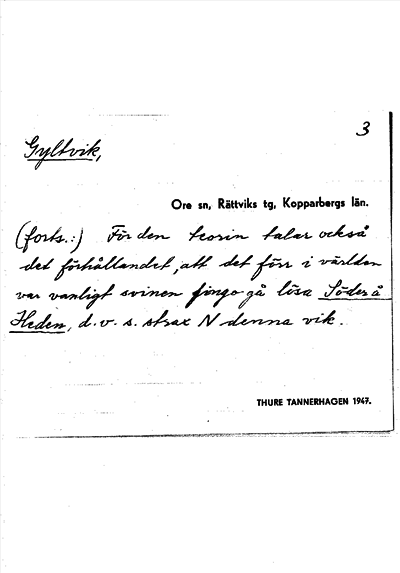 3
Gyltvik,
Ore sn, Rättviks tg, Kopparbergs län.
(forts.:) För den teorin talar också
det förhållandet, att det förr i världen
var vanligt svinen fingo gå lösa Söder å
Heden, d.v.s. strax N denna vik.
THURE TANNERHAGEN 1947.